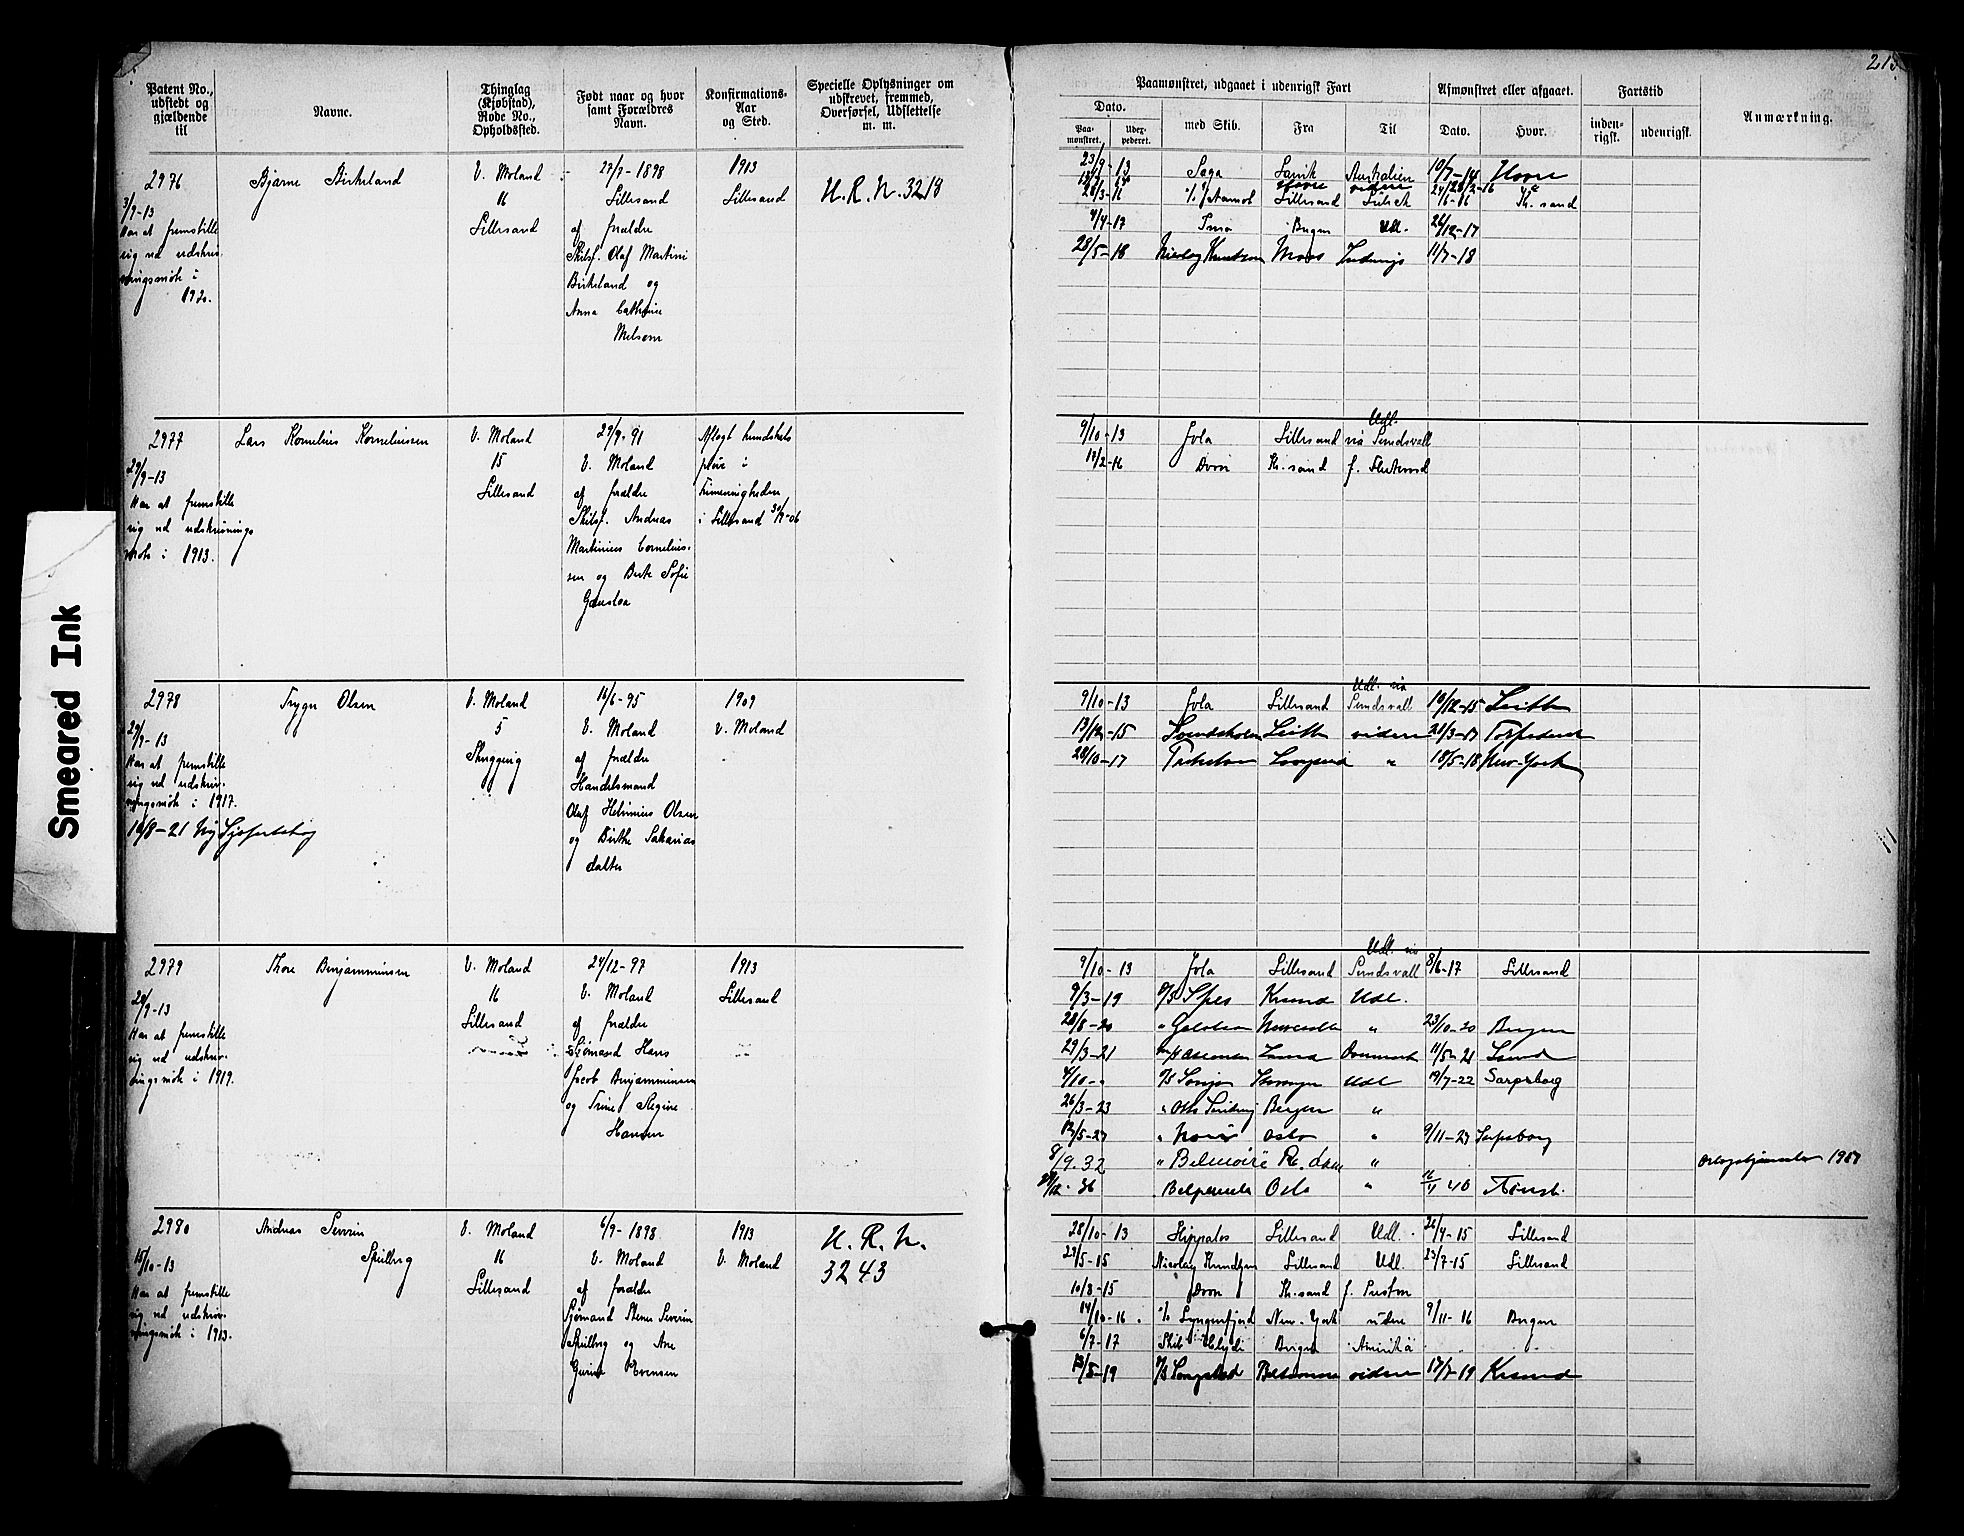 213
Patent No., udstedt og gjældende til
Navne.
Thinglag (Kjøbstad), Rode No., Opholdssted.
Født naar og hvor samt Forældres Navn.
Konfirmations-Aar og Sted.
Specielle Oplysninger om udskrevet, fremmed, Overførsel, Udslettelse m. m.
Paamønstret, udgaaet i udenrigsk Fart
Dato.
Paa-mønstret.
Uder-pederet.
med Skib.
Fra
Til
Afmønstret eller afgaaet.
Dato.
Hvor.
Fartstid
inden-rigsk.
udenrigsk.
Anmærkning.
2976
3/9-13
Har at fremstille
sig ved udskriv-
ningsmøte i
1920.
Bjarne Birkeland
V. Moland
16
Lillesand
27/7-1898
Lillesand
af forældre
Skibsf. Olaf Martini
Birkeland og
Anna Cathrine
Melsom
1913
Lillesand
U. R. N. 3218
23/9-13 Saga Larvik Australien 10/7-14 Havre
28/3-16 Lillesand 24/6-16 Kr. sand
4/4-17 Bergen Udl. 26/12-17
28/5-18 Nicolay Knudsen Moss 11/7-18
2977
29/9-13
Har at fremstille
sig ved udskrivnings
møte i 1913.
Lars Kornelius Korneliussen
V. Moland
15
Lillesand
29/9-91
V. Moland
af forældre
Skibsf. Andreas
Martinius Cornelius-
sen og Berte Sofie
Aflagt kundskabs
prøve i
i Lillesand
Udl.
9/10-13 Jola Lillesand via Sundsvall
19/2-16 Dvori Kr. sand f. Fleetwood
2978
29/9-13
Har at fremstille
sig ved udskriv-
ningsmøte i 1917.
Trygve Olsen
V. Moland
5
16/6-95
V. Moland
af forældre
Handelsmand
Olaf Helmius Olsen
og Birthe Sakarias
datter
1909
V. Moland
Udl. via
9/10-13 Jola Lillesand Sundsvall 10/12-15 Leith
13/12-15 Svendsholm Leith videre 21/3-17
28/10-17 Liverpool " 18/5-18 New-York
2979
29/9-13
Har at fremstille
sig ved udskriv-
ningsmøte i 1919.
Thore Benjaminsen
V. Moland
16
Lillesand
24/12-97
V. Moland
af forældre
Sjømand Hans
Jacob Benjaminsen
og Trine Regine
Hansen
1913
Lillesand
Udl. via
9/10-13 Jola Lillesand Sundsvall 8/6-17 Lillesand
9/3-19 D/S Spes Krsund Udl.
28/8-20 " Newcastle " 23/10-20 Bergen
29/3-21 Danmark 11/5-21
4/10-" D/S Udl 19/7-22 Sarpsborg
26/3-23 " Otto Sinding Bergen "
12/5-27 " Oslo " 9/11-27 Sarpsborg
8/9.32 " Belmoira "
12.36 " Belpareil Oslo " 16/4 40
2980
15/10-13
Har at fremstille
sig ved udskriv-
ningsmøte i 1913.
Andreas Severin
Speilberg
V. Moland
16
Lillesand
6/9-1898
V. Moland
af forældre
Sjømand Stener Severin
Speilberg og Ane
Gurine Evensen
1913
V. Moland
U. R. N.
3243
28/10-13 Hippalos Lillesand Udl. 26/4-15 Lillesand
29/5-15 Nicolay Knudsen Lillesand Udl. 23/7-15 Lillesand
10/8-15 Dvori Kr. sand f. Preston
14/10-16 Lyngenfjord New-York videre 9/11-16 Bergen
6/7-17 Bergen Amerika
D/S Songstad Baltimore videre 17/7-19 Krsund
Smeared Ink